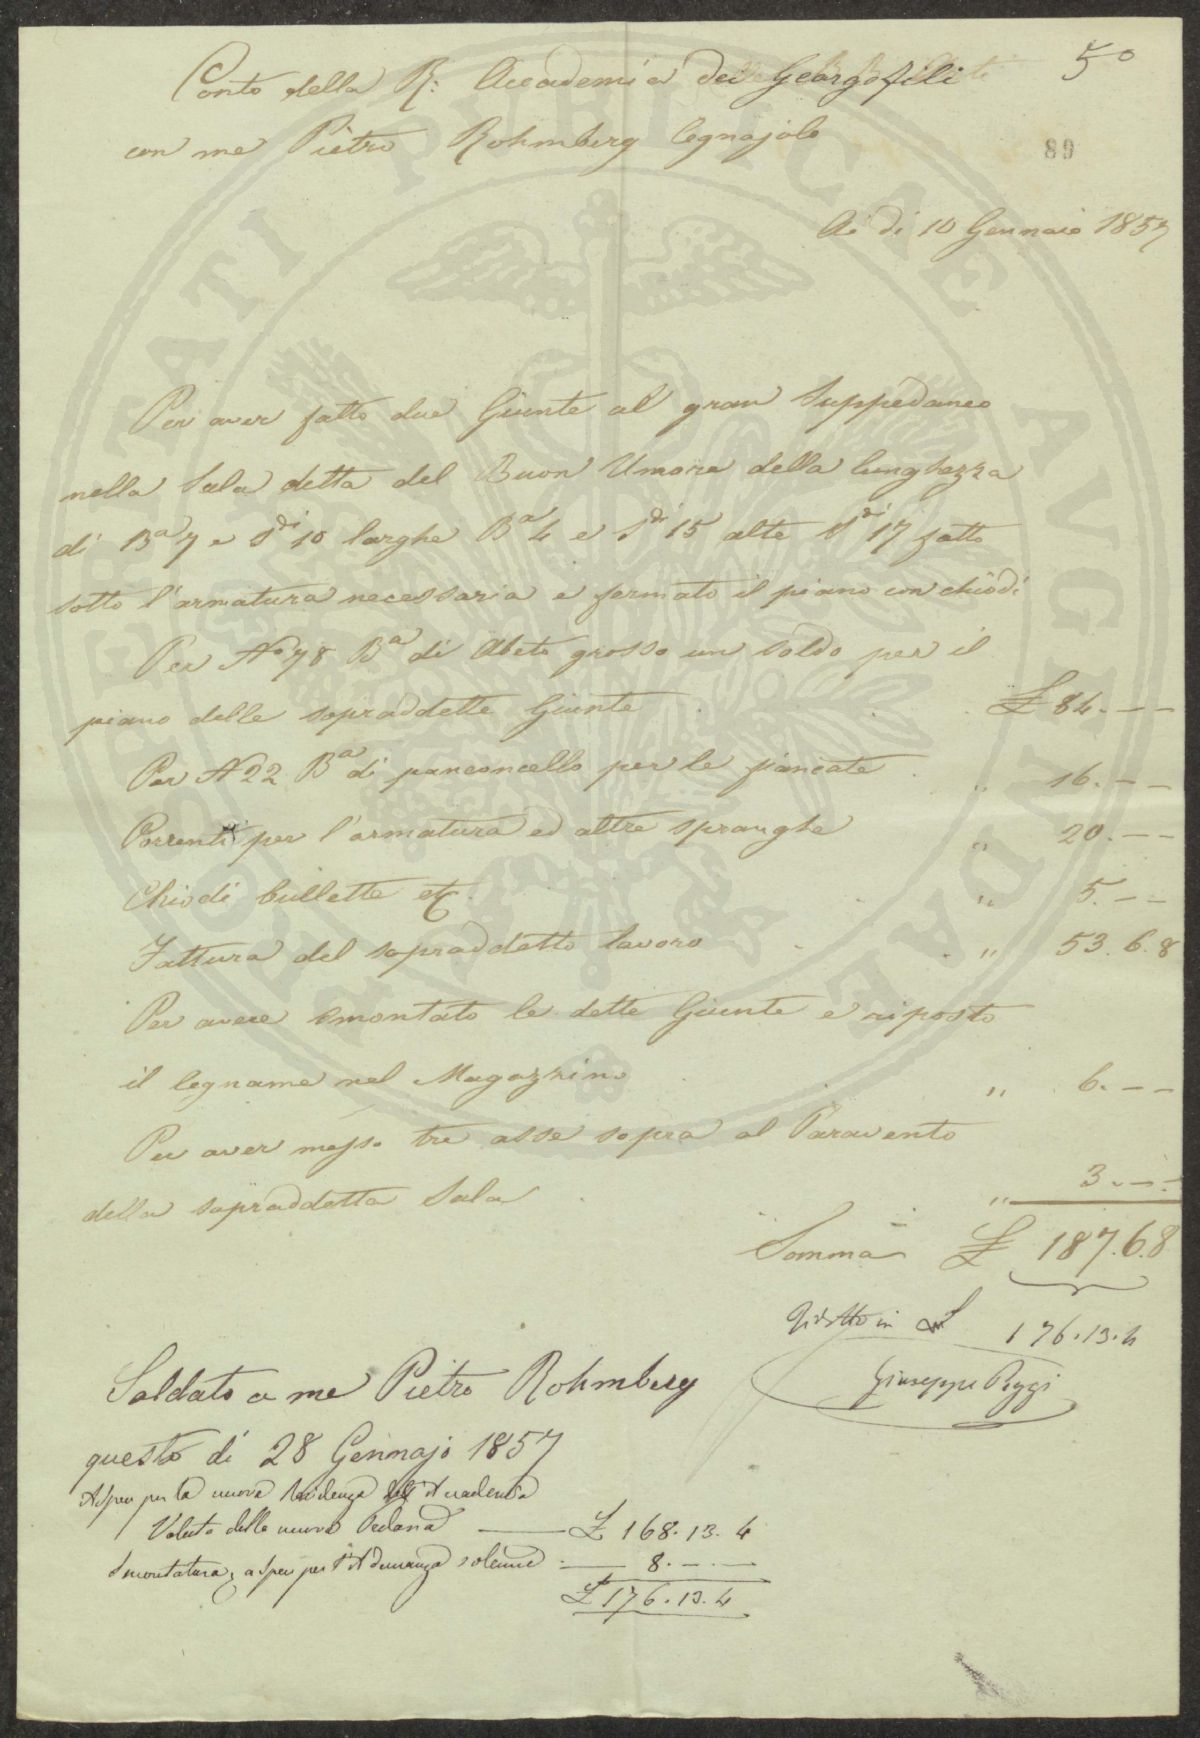 5º
Conto della R: Accademia dei Georgofili
con me Pietro Rohmberg legnajolo
89
A dì 10 Gennaio 1857
Per aver fatto due Giunte al gran Suppedaneo
nella Sala detta del Buon Umore della lunghezza
di Bª 7 e Sdi 10 larghe Bª 4 e Sdi 15 alte Sdi 17 fatto
sotto l'armatura necessaria e fermato il piano con chiodi
Per Nº 78 Bª di Abeto grosso un soldo per il
piano delle sopraddette Giunte £ 84. — —
Per N 22 Bª di panconcello per le fiancate „ 16. — —
Correnti per l'armatura ed altre spranghe „ 20. — —
Chiodi bullette etc. „ 5. — —
Fattura del sopraddetto lavoro „ 53. 6. 8
Per avere smontato le dette Giunte e riposto
il legname nel Magazzino „ 6. — —
Per aver messo tre asse sopra al Paravento
della sopraddetta Sala „ 3. — —
Somma £ 187. 6. 8
Ridotto in £ 176. 13. 4
Giuseppe Poggi
Saldato a me Pietro Rohmberg
questo dì 28 Gennajo 1857
A spese per la nuova Residenza dell'Accademia
Valuta della nuova Pedana — £ 168. 13. 4
Smontatura, a spese per l'Adunanza solenne — 8. — —
£ 176. 13. 4
PROSPERITATI PUBLICAE AVGENDAE